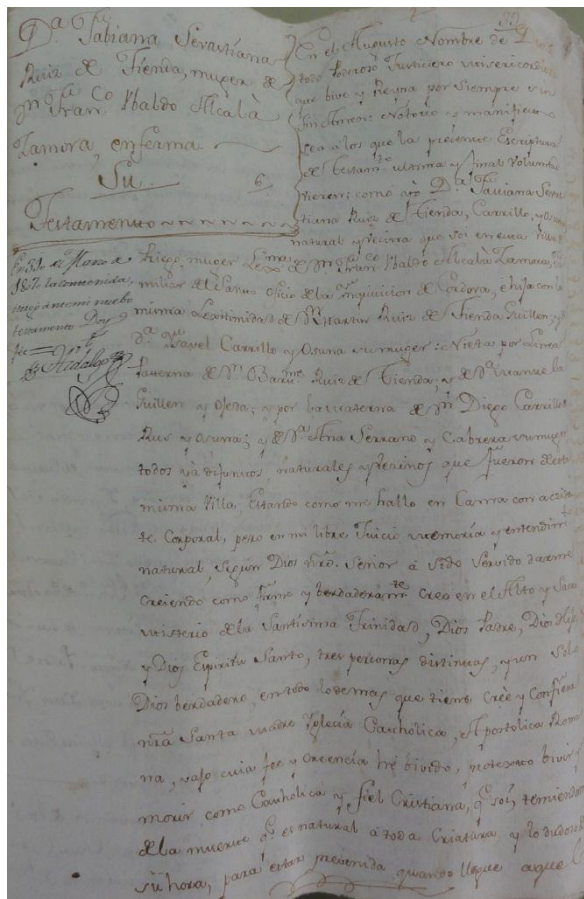 Dª. Fabiana Sevastiana
Ruiz de Tienda, muger de
Dn. Franco. Ubaldo Alcalà
Zamora, enferma
Su
6
Testamento
En el Augusto Nombre de Dios
todo Poderoso Justiciero misericordioso
que bive y Reyna por siempre sin
fin Amen: Notorio y manifiesto
sea a los que la presente Escriptura
de Testamto. ultima y final Voluntad
vieren: como yo Dª. Faviana Sevas
tiana Ruiz de Tienda, Carrillo, y
natural y vezina que soi en esta Villa
de Priego, muger Lexma. de Dn. Franco. Ubaldo Alcalà Zamora,
miliar del Santo Oficio de la Inquisicion de Cordova, e hija con la
misma Legitimidad de Dn. Martin Ruiz de Tienda Guillen, y
Dª. Ysavel Carrillo y Osuna su muger: Nieta por Linea
Paterna de Dn. Barme. Ruiz de Tienda, y de Dª. Manuela
Guillen y Ojeda; y por la materna de Dn. Diego Carrillo
Ruiz y Osuna; y de Dª. Ana Serrano y Cabrera su muger
todos yà difuntos, naturales y vezinos que fueron de esta
misma Villa, Estando como me hallo en Cama con accid
te Corporal, pero en mi libre Juicio memoria y entendimto
natural, segun Dios nro. Señor à sido servido darme
Creiendo como firme y berdaderamte. Creo en el Alto y Sacro
misterio de la Santisima Trinidad, Dios Padre, Dios Hijo
y Dios Espiritu Santo, tres personas distintas, y un solo
Dios berdadero, en todo lo demas que tiene Crèe y Confiesa
nrã Santa madre Yglesia Catholica, Apostolica Roma
na, vajo cuia fee y creencia hè bivido, protexto bivir y
morir, como Catholica y fiel Cristiana, q. soi, temiendome
de la muerte q. es natural à toda Criatura, y lo dudoso de
su hora, para estar prevenida quando llegue aquel
1802 la contenida,
otorgó ante mi nuebo
testamento Doy
fee
Hidalgo